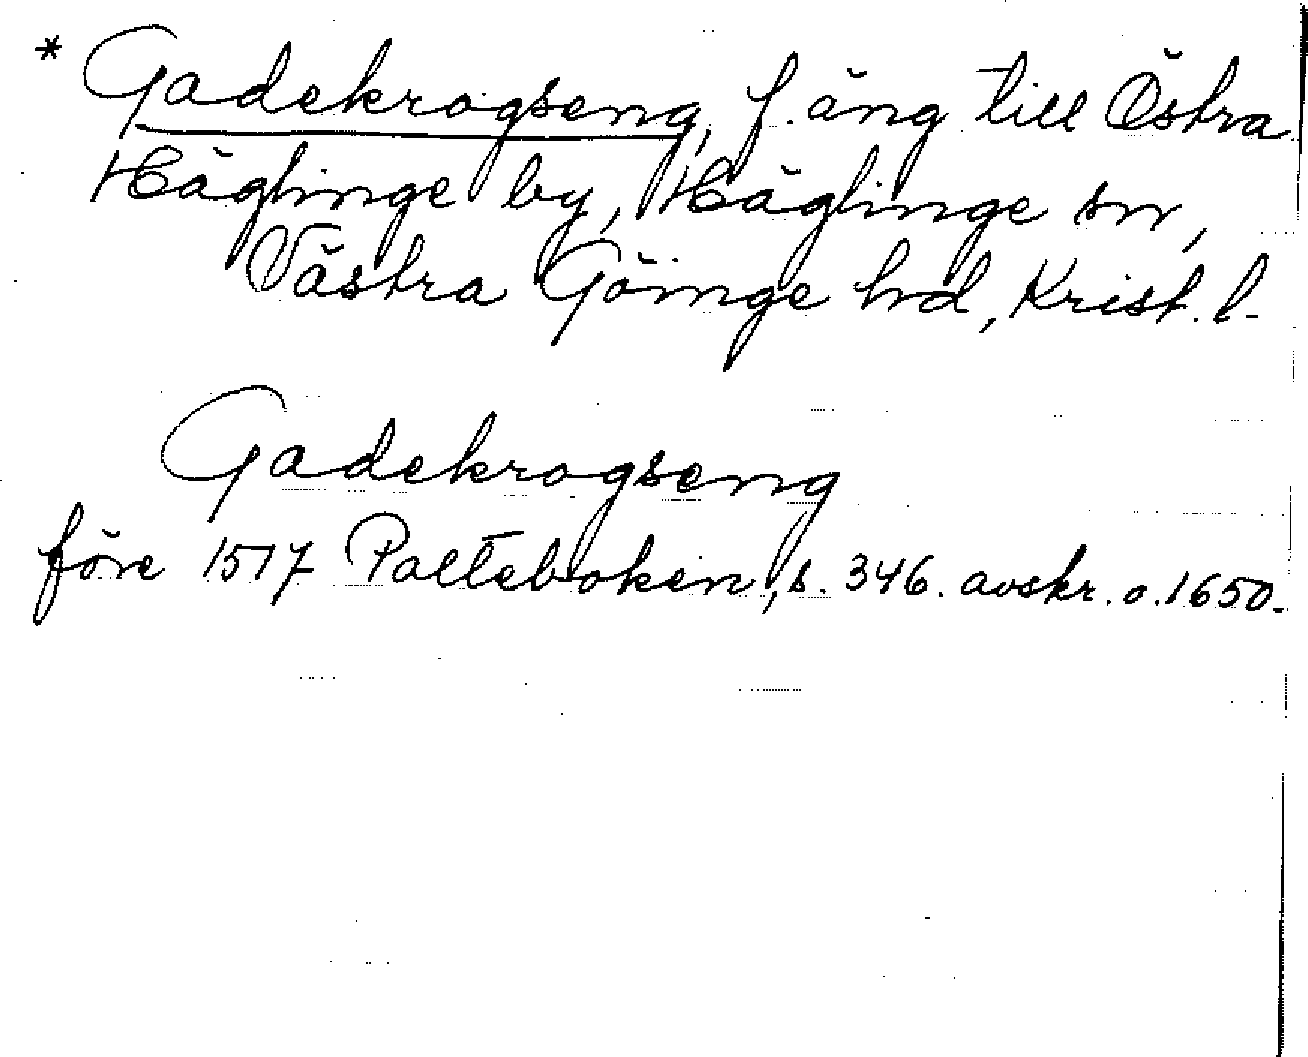 * Gadekrogseng, f. äng till Östra
Häglinge by, Häglinge sn,
Västra Göinge hd, Krist. l.
Gadekrogseng
före 1517 Palteboken, s. 346. avskr. o. 1650.